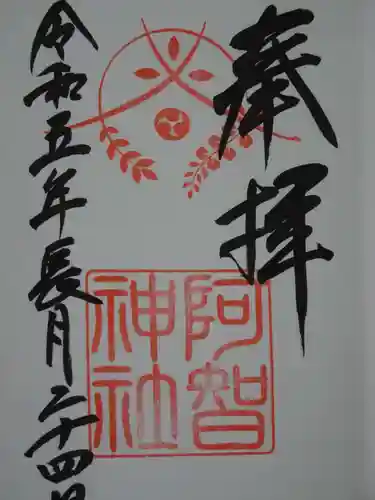 奉拝
阿智
神社
令和五年長月二十四日